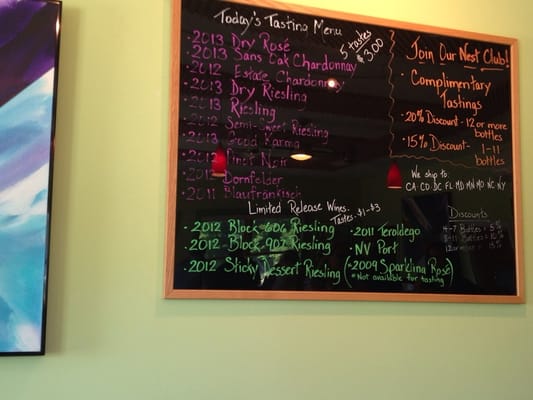 Today's Tasting Menu
5 tastes
$3.00
• 2013 Dry Rosé
• 2013 Sans Oak Chardonnay
• 2012 Estate Chardonnay
• 2013 Dry Riesling
• 2013 Riesling
• 2012 Semi-Sweet Riesling
• 2013 Good Karma
• 2012 Pinot Noir
• 2012 Dornfelder
• 2011 Blaufränkisch
Limited Release Wines.
Tastes: $1-$3
• 2012 Block 606 Riesling
• 2012 Block 907 Riesling
• 2012 Sticky Dessert Riesling
• 2011 Teroldego
• NV Port
(*2009 Sparkling Rosé)
*Not available for tasting
Join Our Nest Club!
• Complimentary
Tastings
• 20% Discount - 12 or more
bottles
• 15% Discount - 1-11
bottles
We ship to:
CA CO DC FL MD MN MO NC NY
Discounts
4-7 Bottles = 5%
8-11 Bottles = 10%
12 or more = 15%